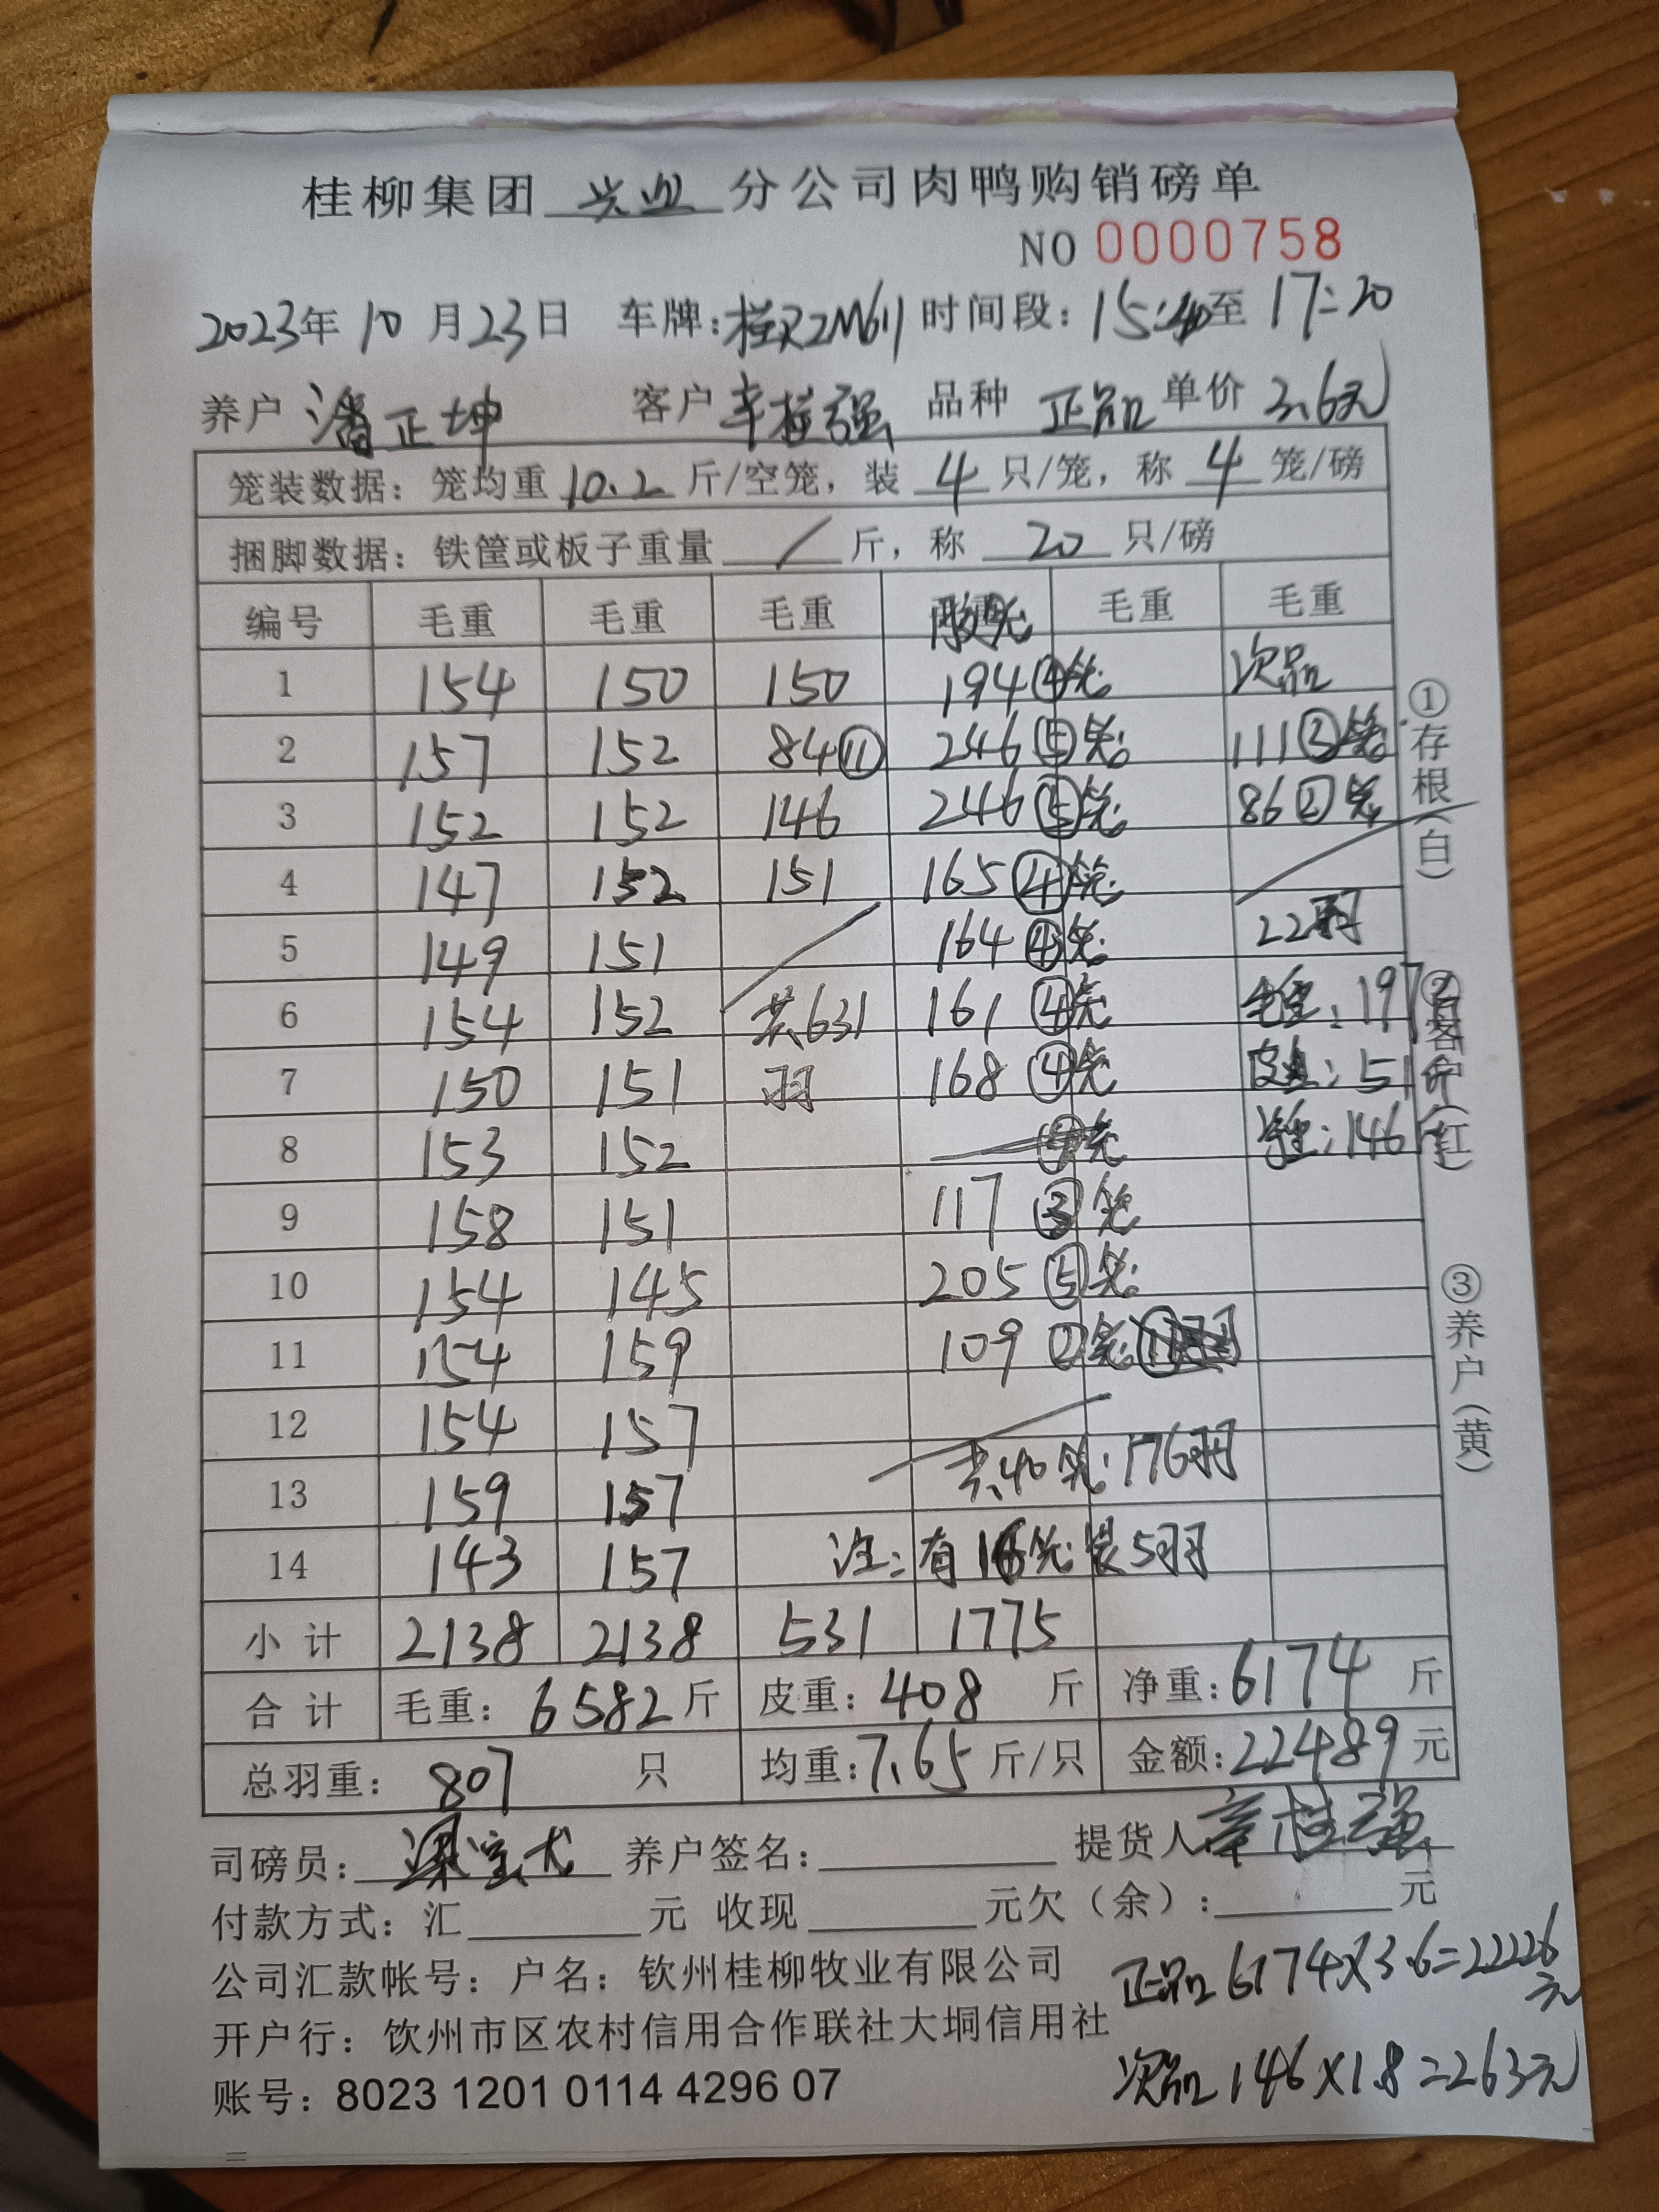 桂柳集团 兴业 分公司肉鸭购销磅单
NO 0000758
2023年 10 月 23 日 车牌:桂R2M611 时间段:15:40至 17:20
养户 潘正坤 客户 辛桂强 品种 正品 单价 3.6元
笼装数据:笼均重 10.2 斤/空笼,装 4 只/笼,称 4 笼/磅
捆脚数据:铁筐或板子重量 / 斤,称 20 只/磅
编号 毛重 毛重 毛重 毛重 毛重
1 154 150 150 194 ④笼 次品
2 157 152 84⑪ 246⑤笼 111③笼
3 152 152 146 246⑤笼 86②笼
4 147 152 151 165④笼
5 149 151 164④笼 22羽
6 154 152 共631 161④笼 毛重:197斤
7 150 151 羽 168④笼 皮重:51斤
8 153 152 净重:146斤
9 158 151 117③笼
10 154 145 205⑤笼
11 154 159 109②笼
12 154 157
13 159 157 共40笼176羽
14 143 157 注:有16笼装5羽
小计 2138 2138 531 1775
合计 毛重:6582斤 皮重:408斤 净重:6174斤
总羽重:807只 均重:7.65斤/只 金额:22489元
司磅员: 养户签名: 提货人 辛桂强
付款方式:汇 元 收现 元欠(余): 元
公司汇款帐号:户名:钦州桂柳牧业有限公司
正品 6174×3.6=22226元
开户行:饮州市区农村信用合作联社大垌信用社
账号:8023 1201 0114 4296 07
次品 146×1.8=263元
①存根(白)
②客户(红)
③养户(黄)